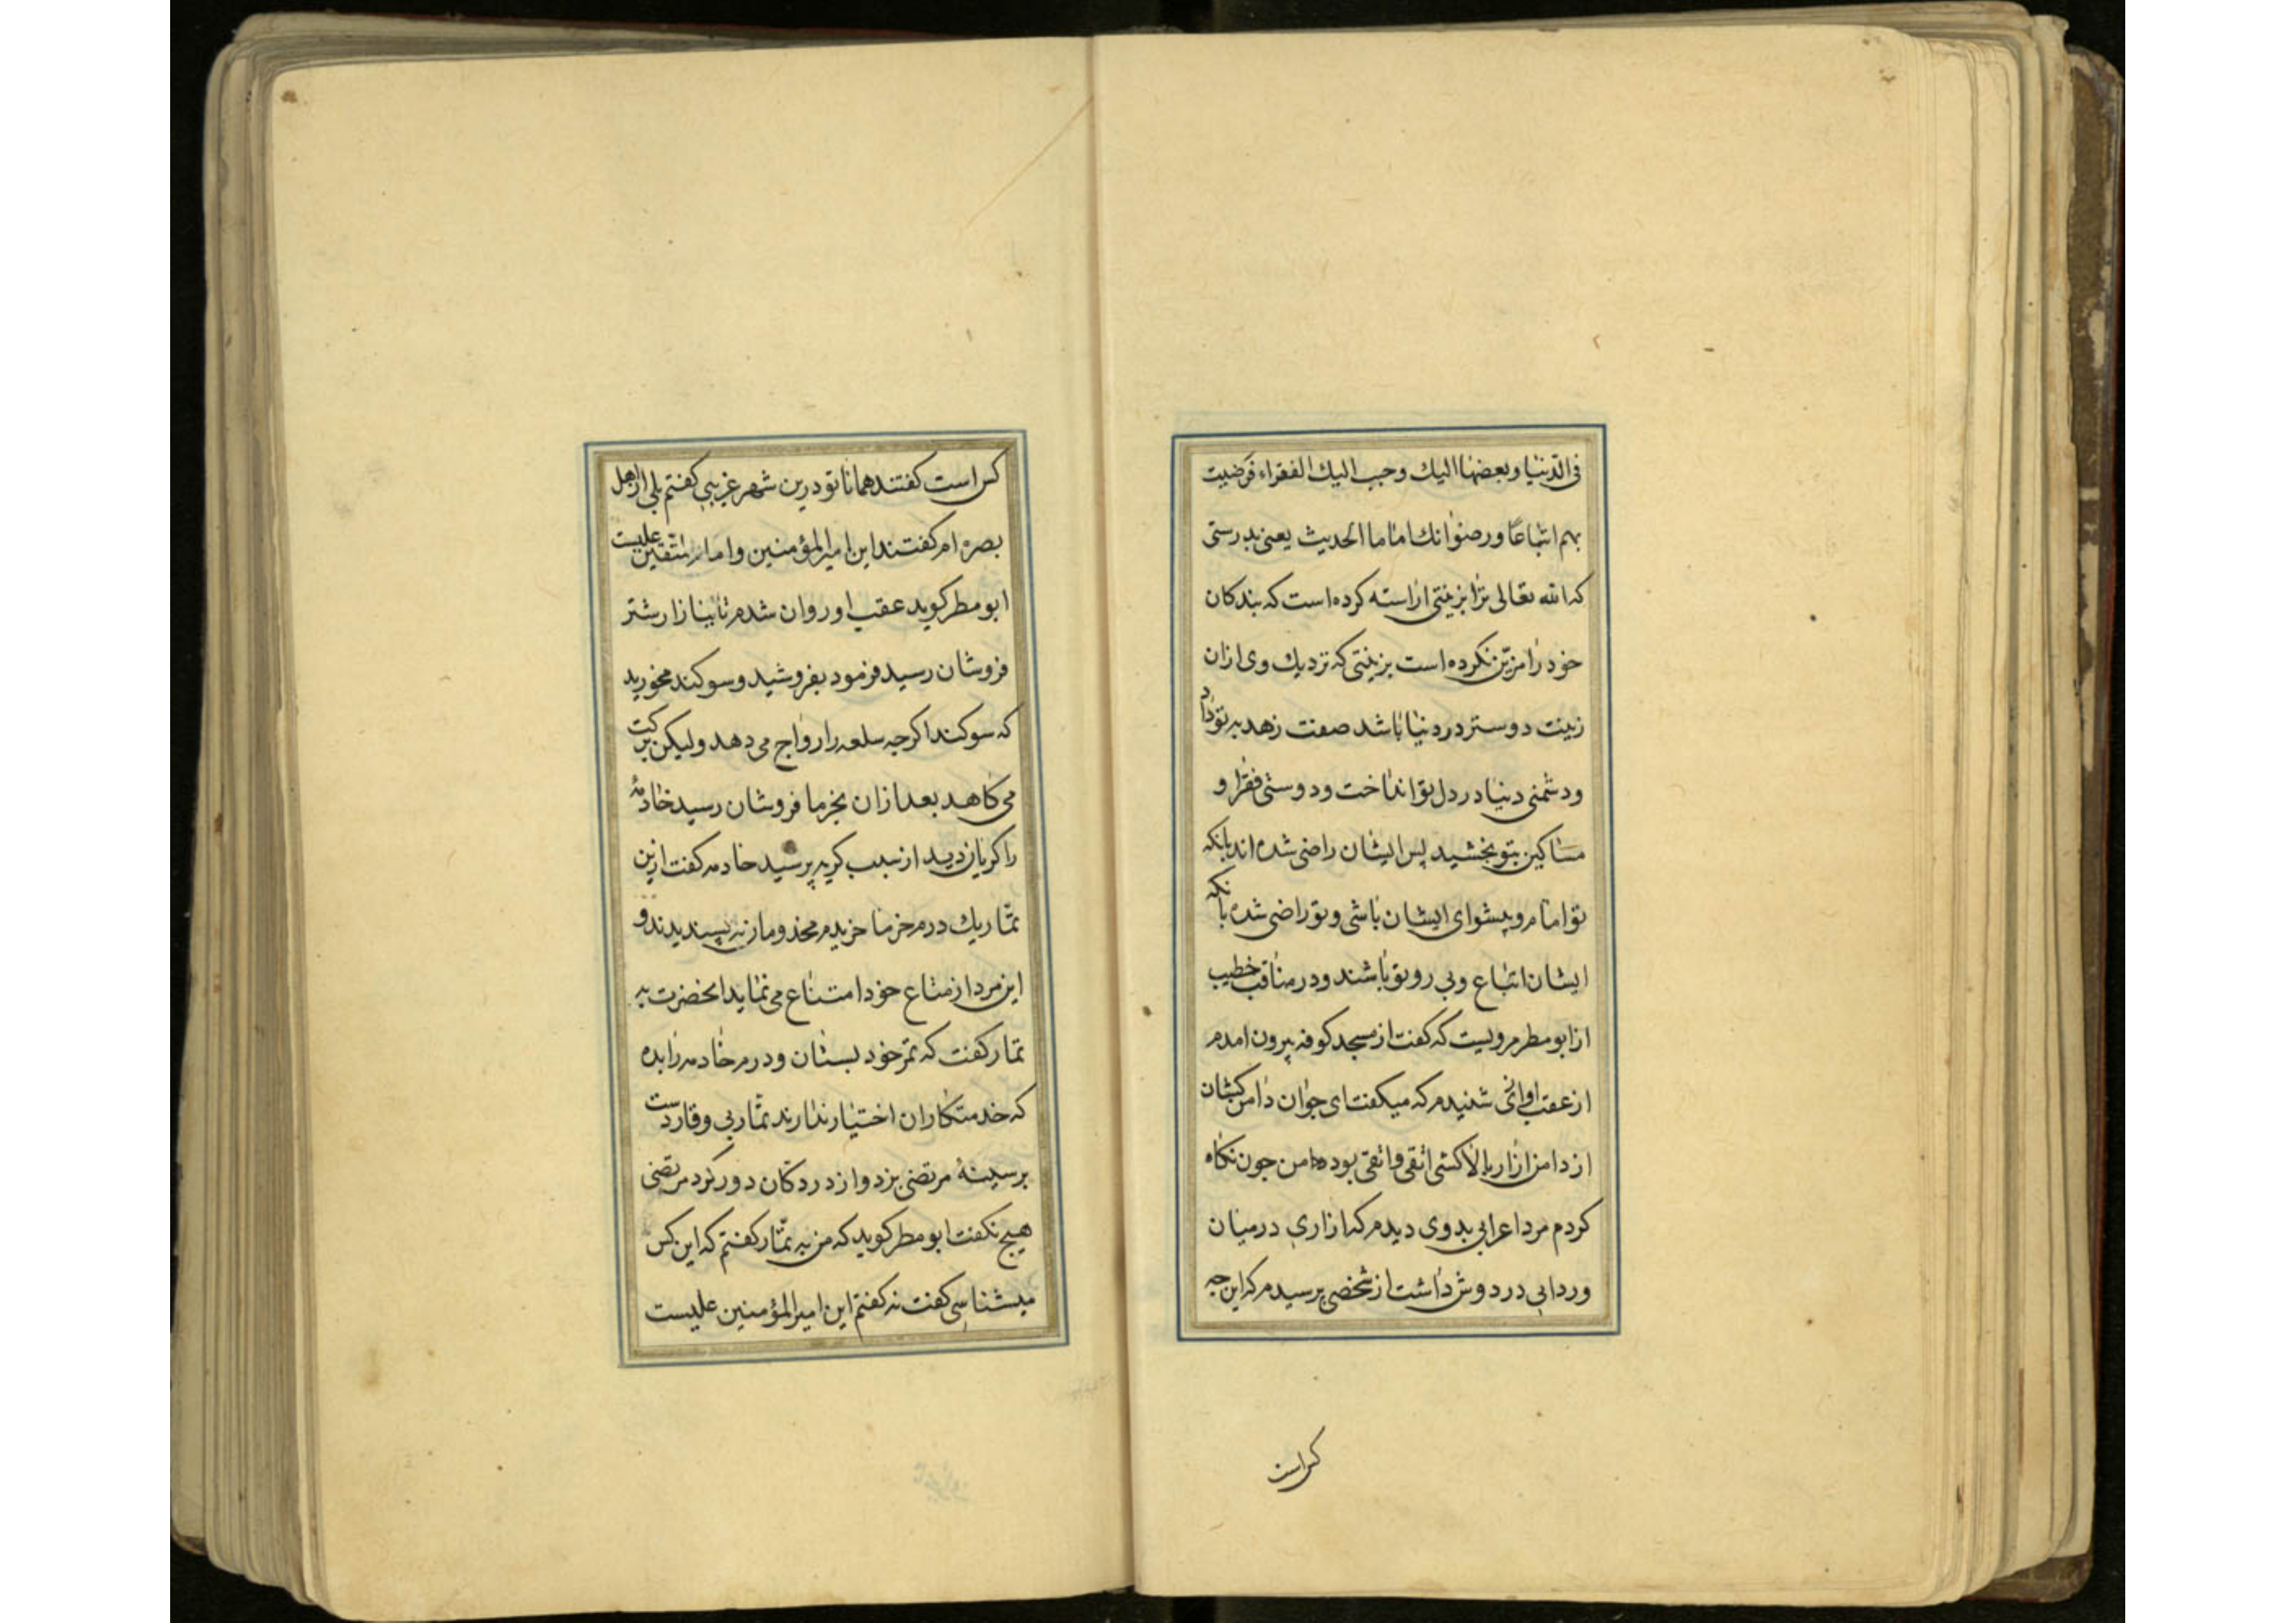 فی الدنیا وبعضها الیك وحبب الیك الفقراء فرضیت
بهم اتباعًا ورضوا انك اماما الحدیث یعنی بدرستی
که الله تعالی ترا بزینتی اراسته کرده است که بندکان
خود را مزین نکرده است بزینتی که نزدیك وی ازان
زینت دوستر در دنیا باشد صفت زهد به تو داد
ودشمنی دنیا در دل تو انداخت ودوستی فقرا و
مساکین بتو بخشید پس ایشان راضی شده اند بانکه
تو امام وپیشوای ایشان باشی وتو راضی شده بانکه
ایشان اتباع وپی رو تو باشند ودر مناقب خطیب
از ابو مطر مرویست که کفت از مسجد کوفه بیرون امدم
از عقب اوازی شنیدم که میکفت ای جوان دامن کشان
از دامن ازار بالا کشی اتقی وانقی بود من جون نکاه
کردم مرد اعرابی بدوی دیدم که ازاری در میان
وردایی در دوش داشت از شخصی پرسیدم که این جه
کس است
کس است کفتند همانا تو درین شهر غریبی کفتم بلی از اهل
بصره ام کفتند این امیرالمؤمنین وامام المتقین علیست
ابو مطر کوید عقب او روان شدم تا ببازار شتر
فروشان رسید فرمود بفروشید وسوکند مخورید
که سوکند اکرجه سلعه را رواج می دهد ولیکن برکت
می کاهد بعد ازان بخرما فروشان رسید خادمهٔ
را کریان دید از سبب کریه پرسید خادمه کفت ازین
تمّار یك درم خرما خریدم مخدومان نه پسندیدند و
این مرد از متاع خود امتناع می نماید انحضرت به
تمار کفت که تمر خود بستان ودرم خادمه را بده
که خدمتکاران اختیار ندارند تمّار بی وقار دست
بر سینهٔ مرتضی بزد واز در دکان دور کرد مرتضی
هیچ نکفت ابو مطر کوید که من به تمّار کفتم که این کس
میشناسی کفت نه کفتم این امیرالمؤمنین علیست